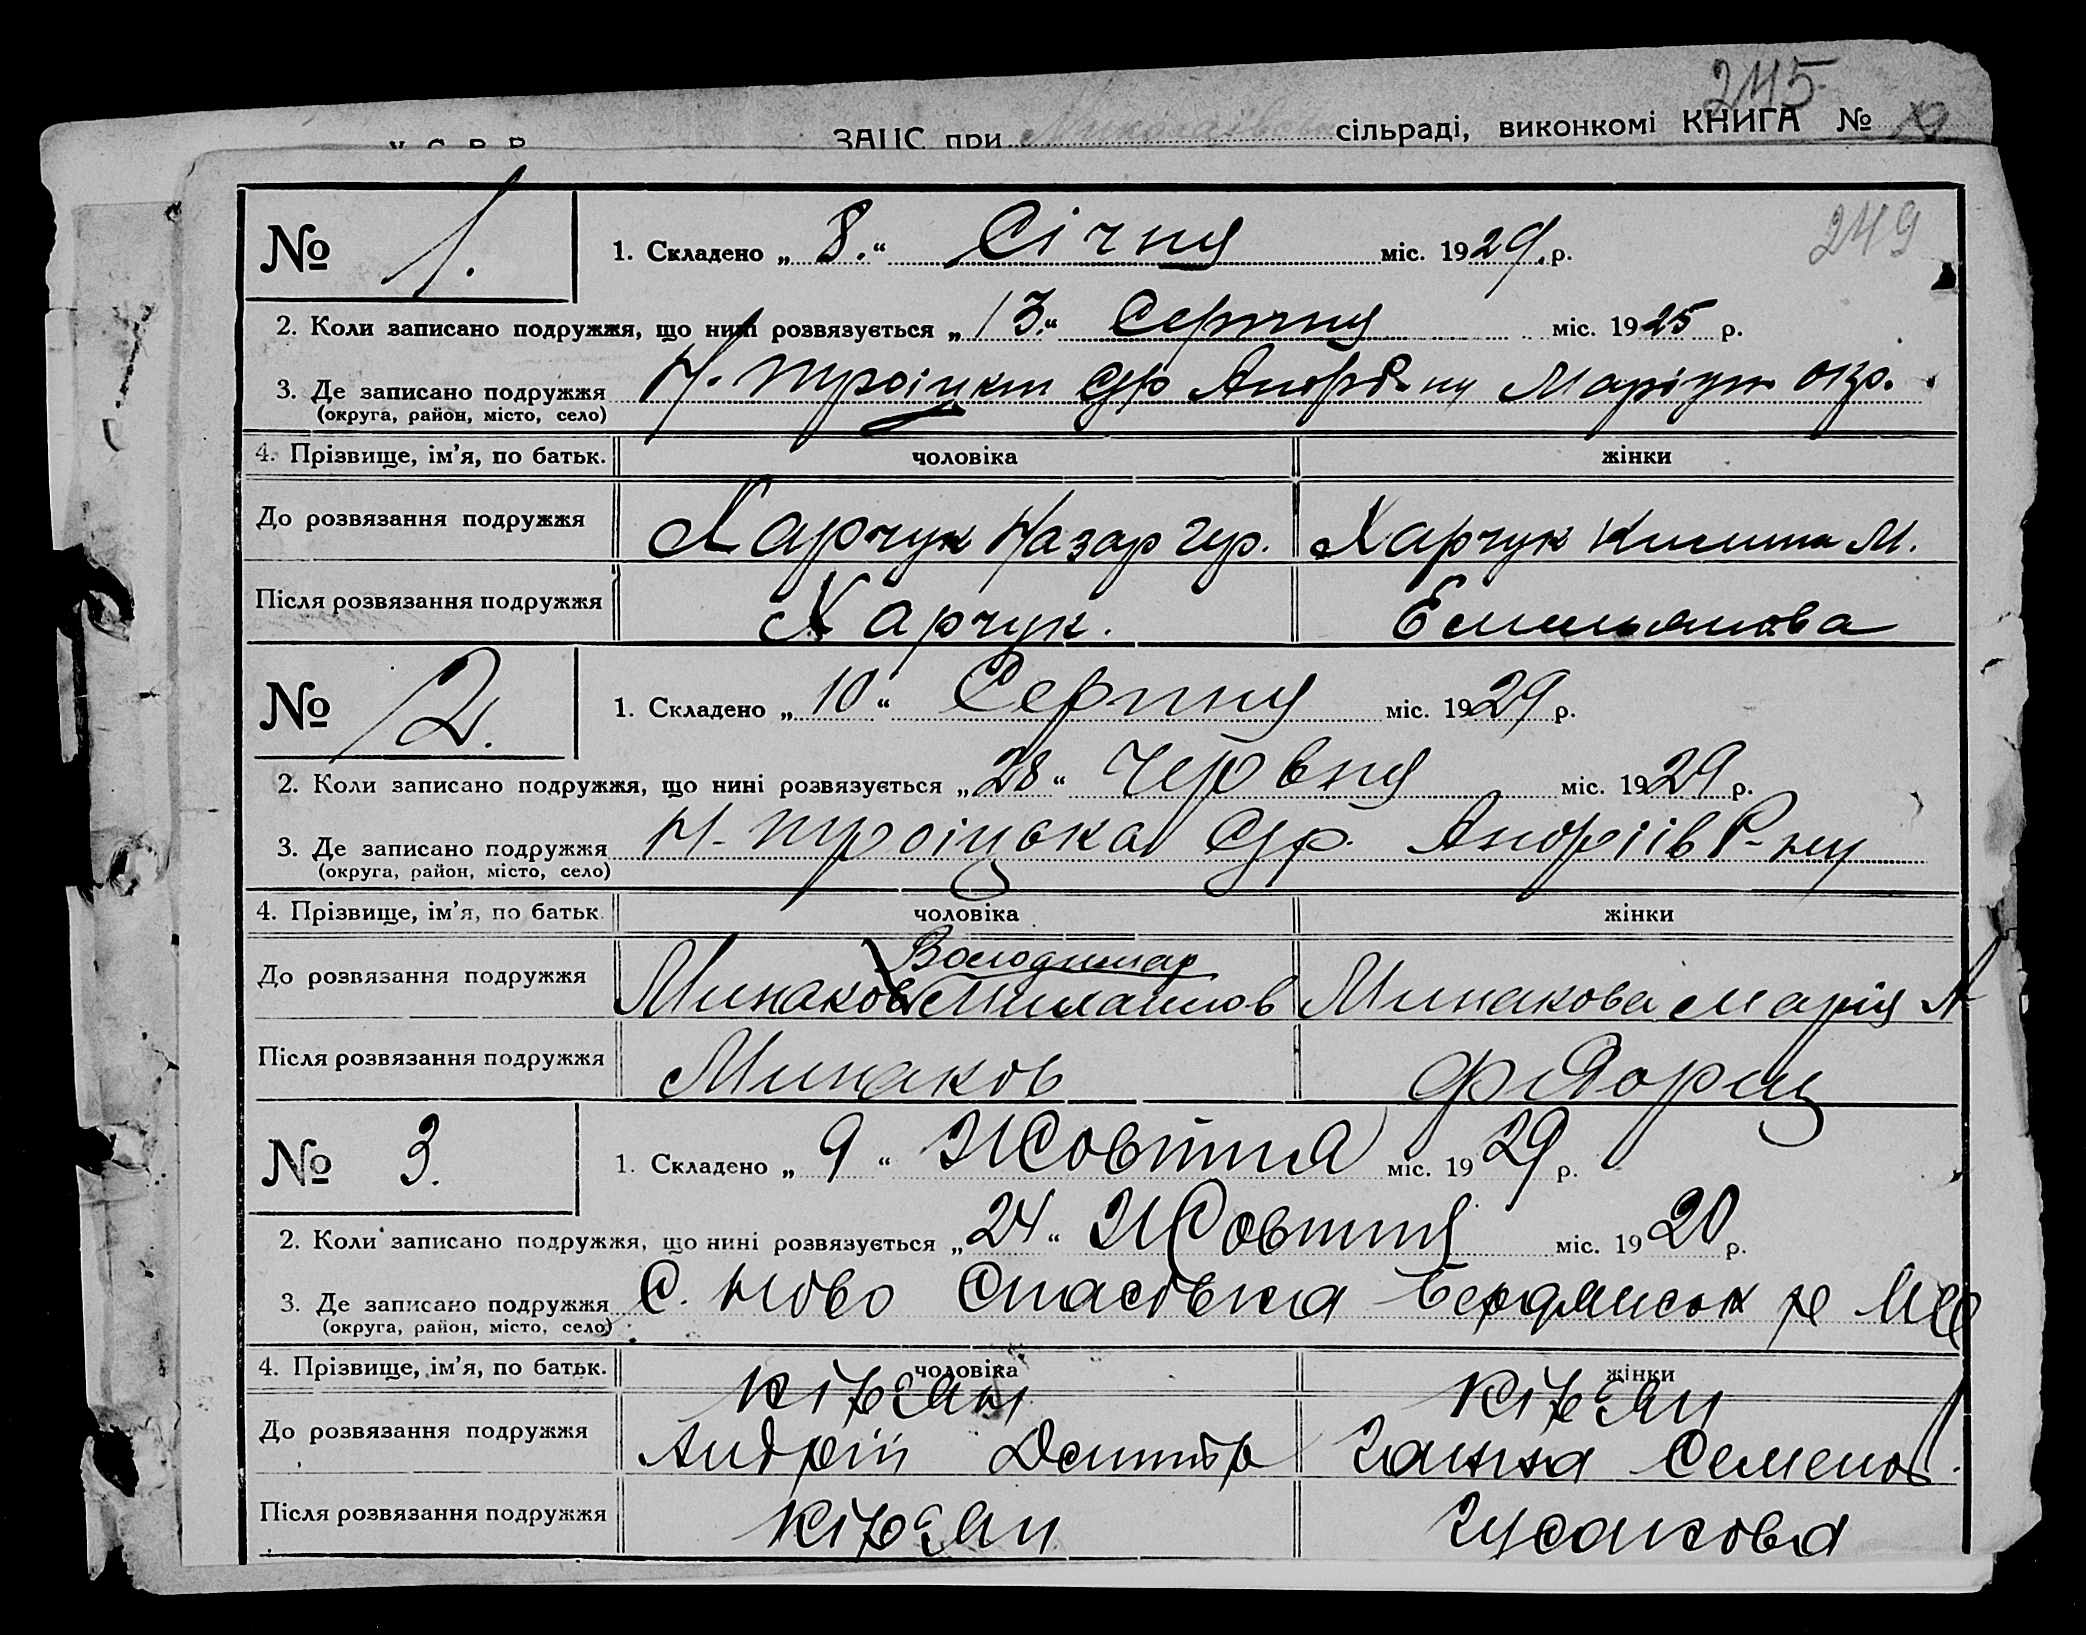 245
ЗАЦС при сільраді, виконкомі КНИГА №
249
№ 1.
1. Складено „ 8. “ Січня міс. 1929. р.
2. Коли записано подружжя, що нині розвязується „ 13. “ Серпня міс. 1925 р.
3. Де записано подружжя Н. троіцкій с/р Маріуп окр.
(округа, район, місто, село)
4. Прізвище, ім'я, по батьк. чоловіка жінки
До розвязання подружжя Харчук Назар Гур. Харчук М.
Після розвязання подружжя Харчук. Емельянова
№ 2.
1. Складено „ 10 “ Серпня міс. 1929 р.
2. Коли записано подружжя, що нині розвязується „ 28 “ Червня міс. 1929 р.
3. Де записано подружжя Н-троіцька С/р. Андріів Р-ну
(округа, район, місто, село)
4. Прізвище, ім'я, по батьк чоловіка жінки
Володимар
До розвязання подружжя Минаков Минакова Мария
Після розвязання подружжя Минаков
№ 3.
1. Складено „ 9 “ Жовтня міс. 1929 р.
2. Коли записано подружжя, що нині розвязується „ 24 “ Жовтня міс. 1920 р.
3. Де записано подружжя С. Ново Спасовка
(округа, район, місто, село)
4. Прізвище, ім'я, по батьк. чоловіка жінки
До розвязання подружжя Андрій Ганна Семенов
Після розвязання подружжя Гусакова